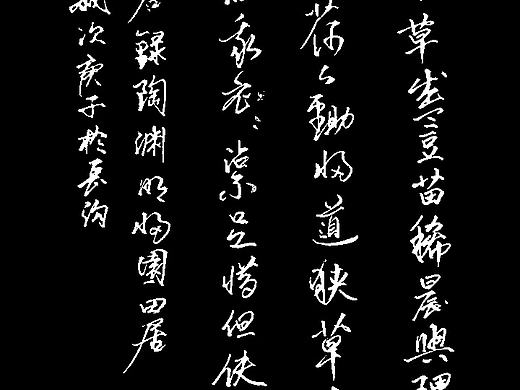 草盛豆苗稀晨興理
荷鋤歸道狹草
我衣衣沾不足惜但使
錄陶淵明歸園田居
歲次庚子於長